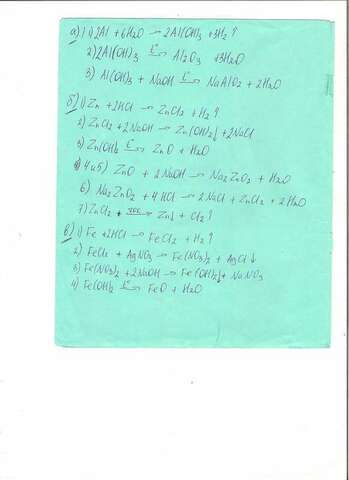 а) 1) 2Al + 6H2O → 2Al(OH)3 + 3H2↑
2) 2Al(OH)3 t°→ Al2O3 + 3H2O
3) Al(OH)3 + NaOH t°→ NaAlO2 + 2H2O
б) 1) Zn + 2HCl → ZnCl2 + H2↑
2) ZnCl2 + 2NaOH → Zn(OH)2↓ + 2NaCl
3) Zn(OH)2 t°→ ZnO + H2O
4 и 5) ZnO + 2NaOH → Na2ZnO2 + H2O
6) Na2ZnO2 + 4HCl → 2NaCl + ZnCl2 + 2H2O
7) ZnCl2 → Zn↓ + Cl2↑
в) 1) Fe + 2HCl → FeCl2 + H2↑
2) FeCl2 + AgNO3 → Fe(NO3)2 + AgCl↓
3) Fe(NO3)2 + 2NaOH → Fe(OH)2↓ + NaNO3
4) Fe(OH)2 t°→ FeO + H2O